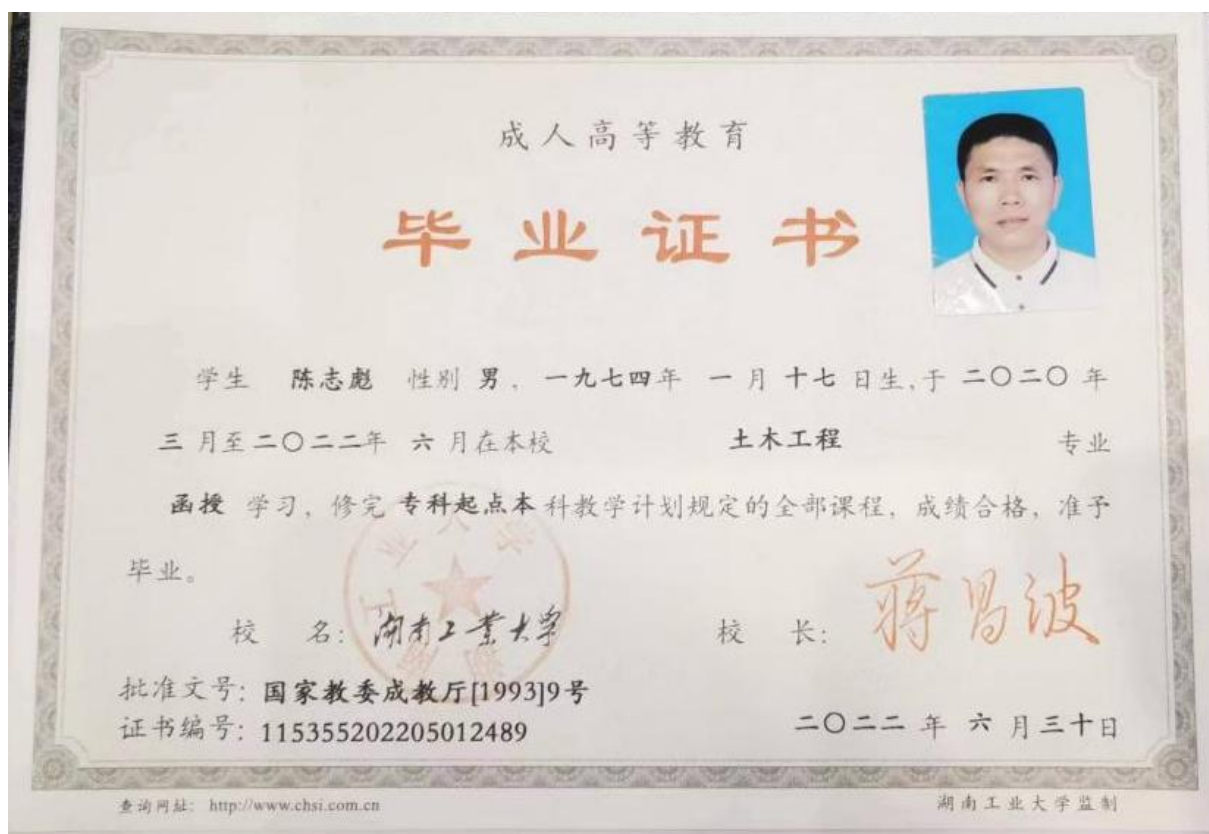 成人高等教育
毕业证书
学生 陈志彪 性别 男，一九七四年 一月十七日生，于二〇二〇年
三月至二〇二二年 六月在本校 土木工程 专业
函授 学习，修完 专科起点本 科教学计划规定的全部课程，成绩合格，准予
毕业。
校 名：湖南工业大学 校 长：蒋昌波
批准文号：国家教委成教厅[1993]9号
证书编号：115355202205012489 二〇二二年 六月三十日
查询网址：http://www.chsi.com.cn 湖南工业大学监制